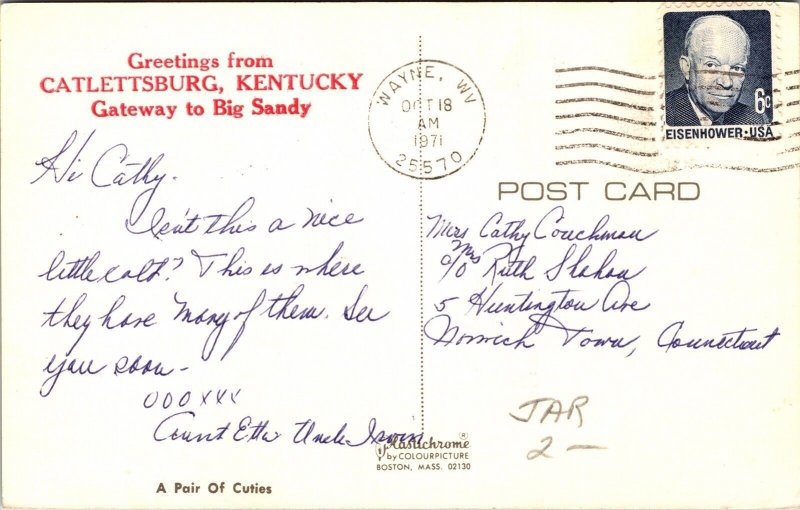 Greetings from
CATLETTSBURG, KENTUCKY
Gateway to Big Sandy
WAYNE, WV
OCT 18
AM
1971
25570
6c
EISENHOWER·USA
Hi Cathy.
Isn't this a nice
little colt? This is where
they have many of them. See
you soon -
OOOXXX
Aunt Etta Uncle Irwin
A Pair Of Cuties
POST CARD
Mrs Cathy Couchman
c/o Mrs Ruth Shahan
5 Huntington Ave
Norwich Town, Connecticut
JAR
2 —
Plastichrome®
by COLOURPICTURE
BOSTON, MASS. 02130